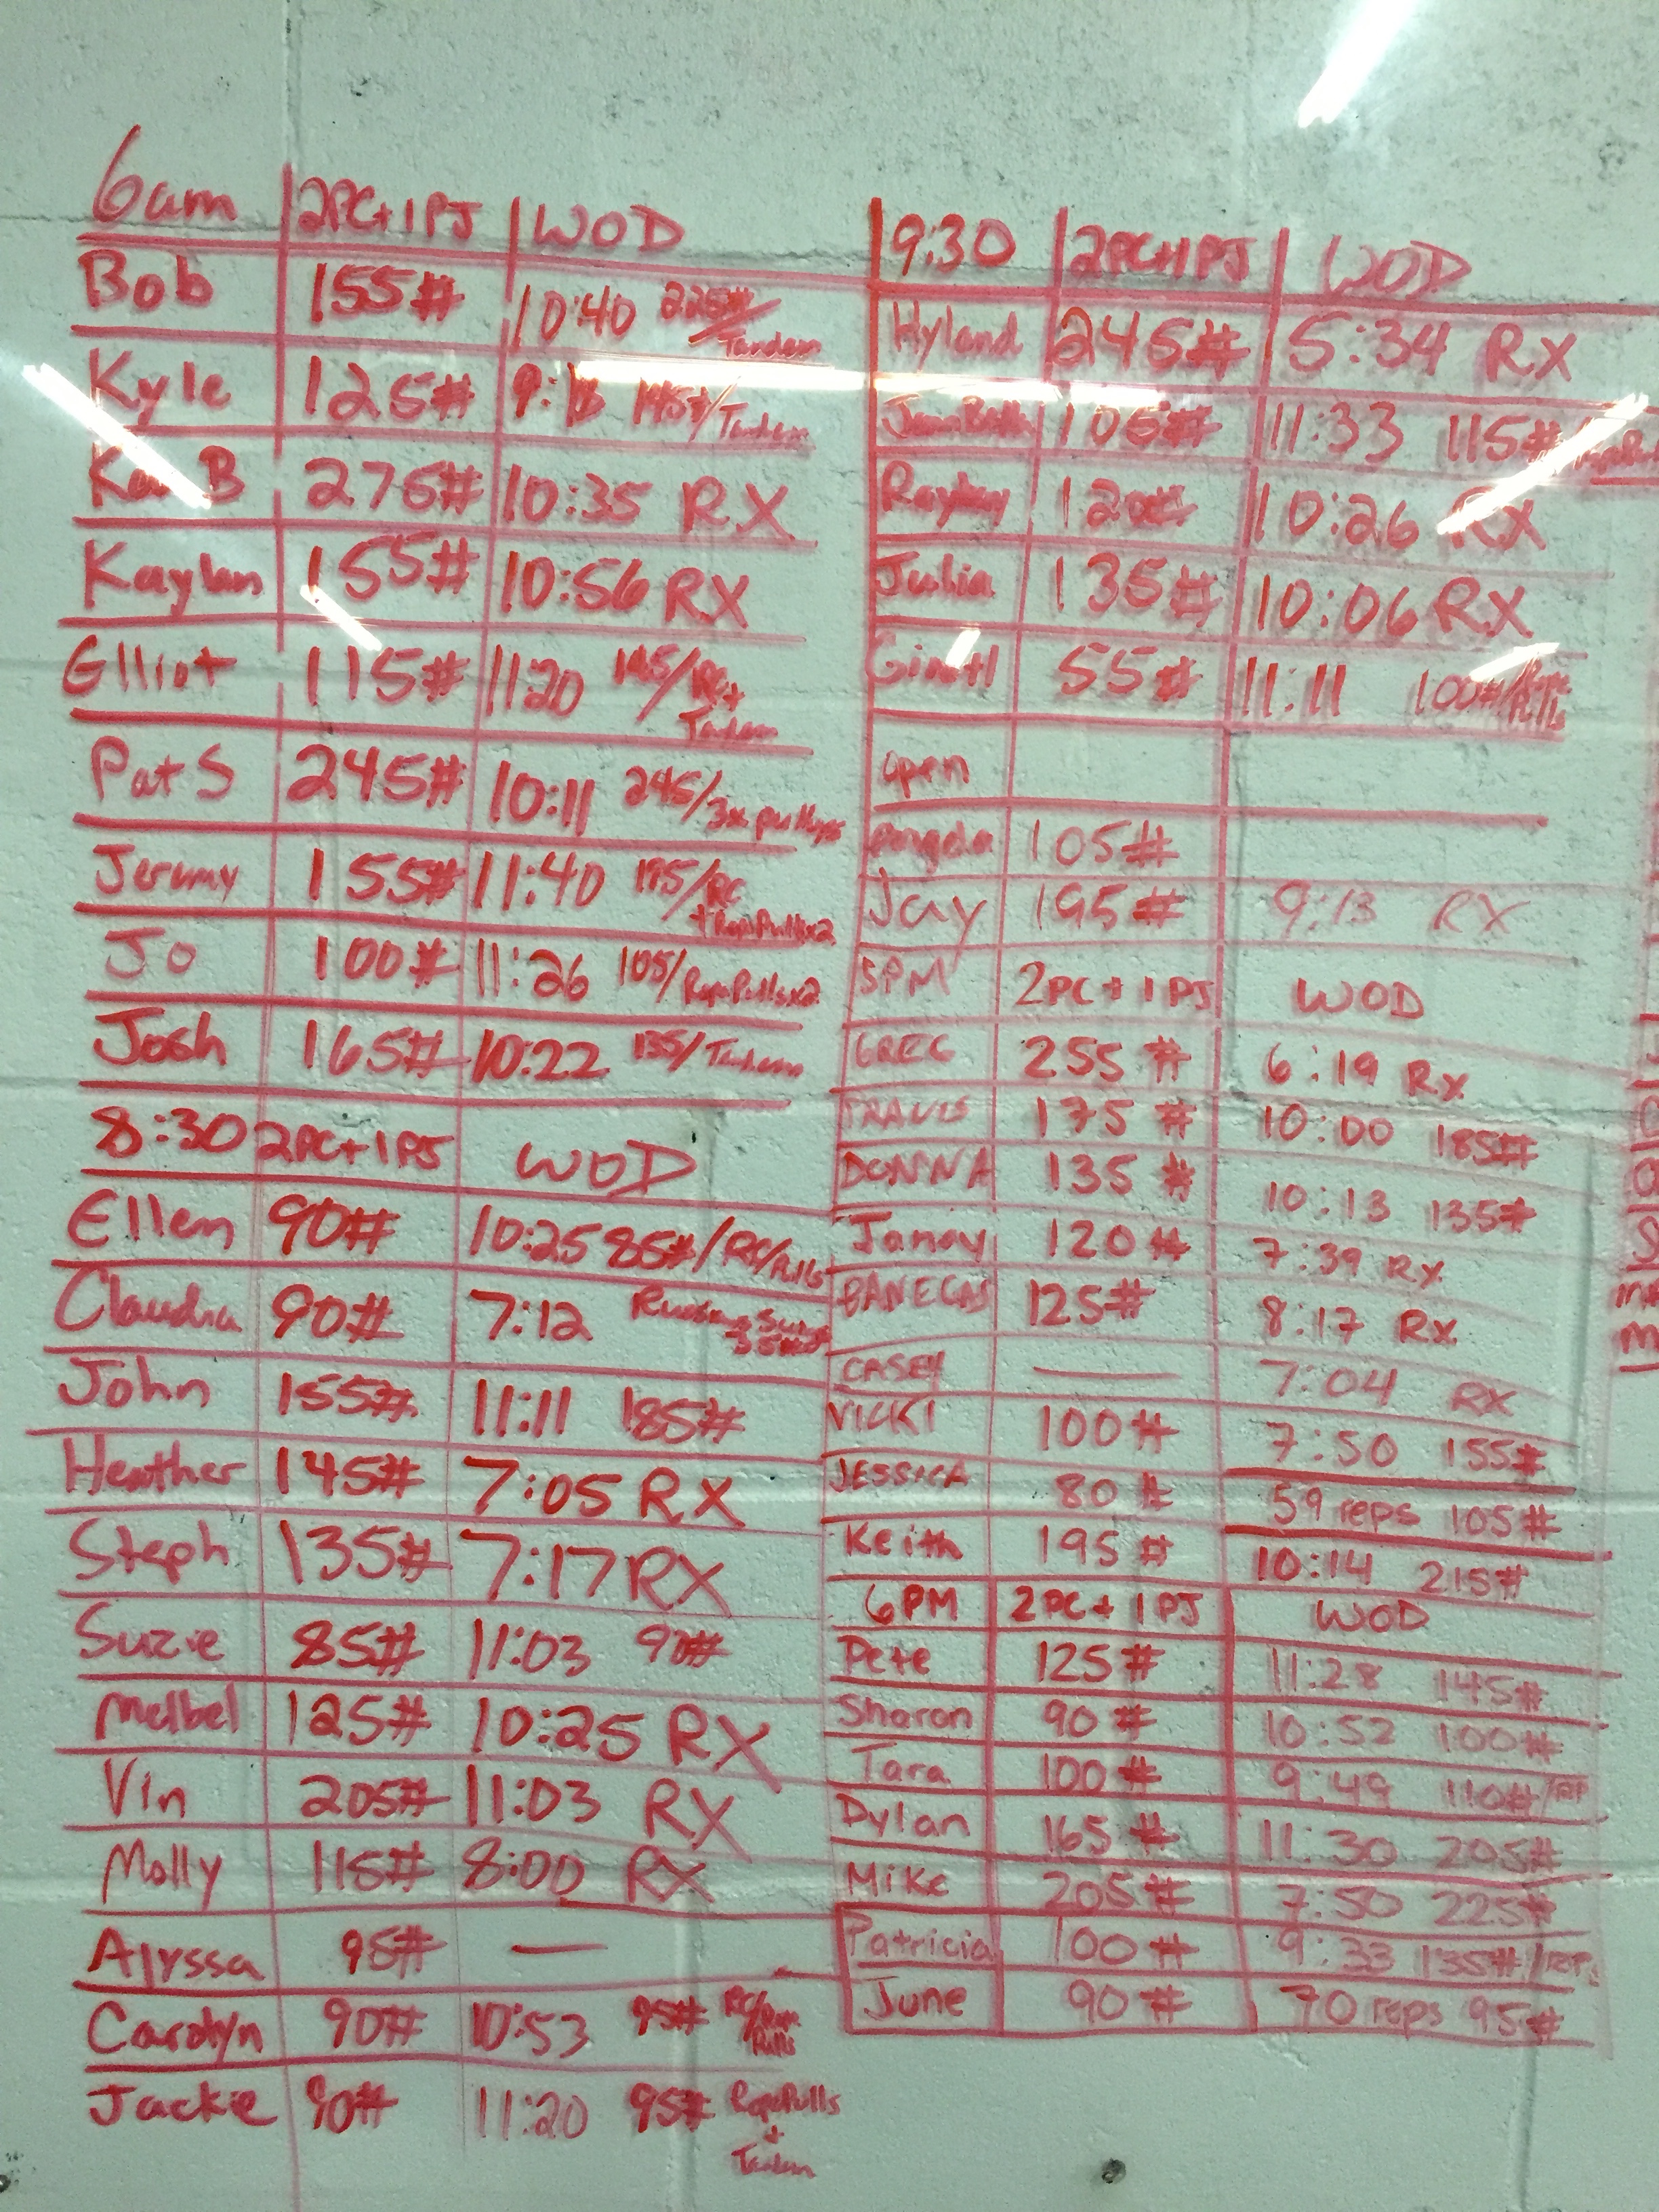 6am 2PC+1PJ WOD
Bob 155# 10:40 225#/Tandem
Kyle 125# 9: 145#/Tandem
B 275# 10:35 RX
Kaylan 155# 10:56 RX
Elliot 115# 11:20 145/RC+
Tandem
Pat S 245# 10:11 245/3x pullups
Jeremy 155# 11:40 /RC
+Rope Pullsx2
Jo 100# 11:26 105/Rope Pullsx2
Josh 165# 10:22 135/Tandem
8:30 2PC+1PJ WOD
Ellen 90# 10:25 85#/RC/Pulls
Claudia 90# 7:12 Russian Swings
John 155# 11:11 185#
Heather 145# 7:05 RX
Steph 135# 7:17 RX
Suzie 85# 11:03 90#
Melbel 125# 10:25 RX
Vin 205# 11:03 RX
Molly 115# 8:00 RX
Alyssa 95# —
Carolyn 90# 10:53 95# RC/Rope
Pulls
Jackie 90# 11:20 95# Rope Pulls
+
Tandem
9:30 2PC+1PJ WOD
Hyland 245# 5:34 RX
105# 11:33 115#
120# 10:26 RX
Julia 135# 10:06 RX
55# 11:11 100#/Rope
Pulls
open
105#
Jay 195# 9:13 RX
5PM 2PC+1PJ WOD
GREG 255# 6:19 Rx
TRAVIS 175# 10:00 185#
DONNA 135# 10:13 135#
Janay 120# 7:39 Rx
BANEGAS 125# 8:17 Rx
CASEY — 7:04 RX
VICKI 100# 7:50 155#
JESSICA 80# 59 reps 105#
Keith 195# 10:14 215#
6PM 2PC+1PJ WOD
Pete 125# 11:28 145#
Sharon 90# 10:52 100#
Tara 100# 9:49 110#/RP
Dylan 165# 11:30 205#
Mike 205# 7:50 225#
Patricia 100# 9:33 135#
June 90# 70 reps 95#